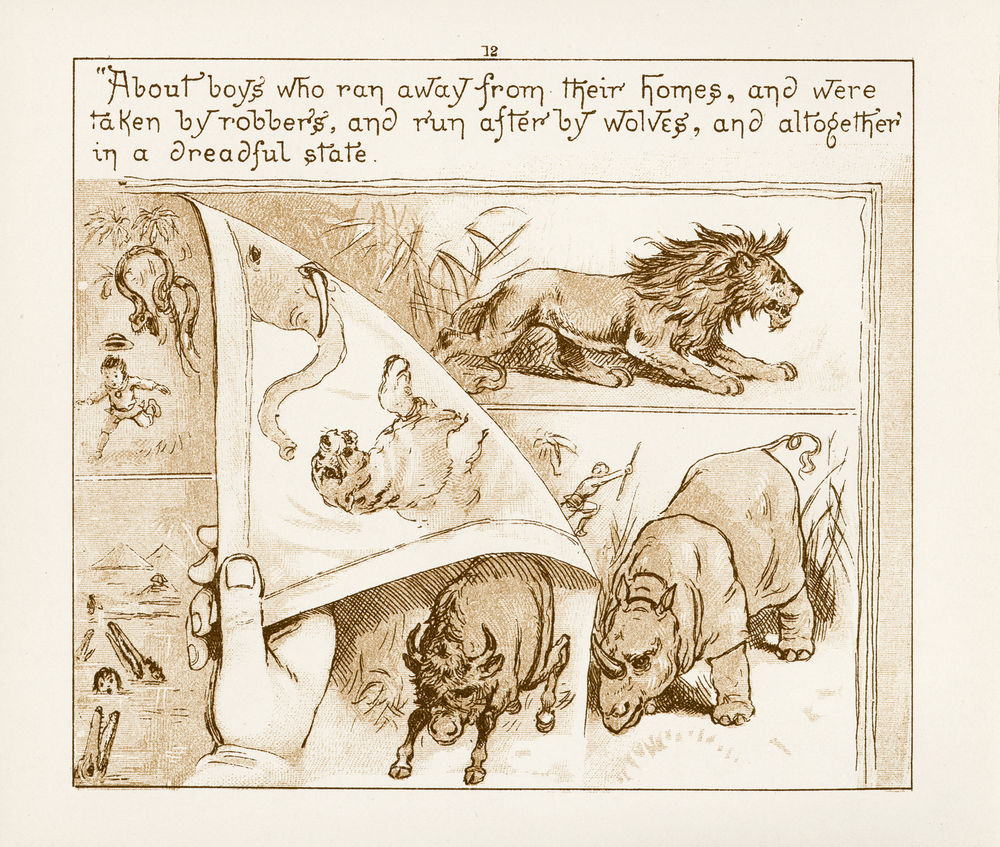 12
"About boys who ran away from their homes, and were
taken by robbers, and run after by wolves, and altogether
in a dreadful state.